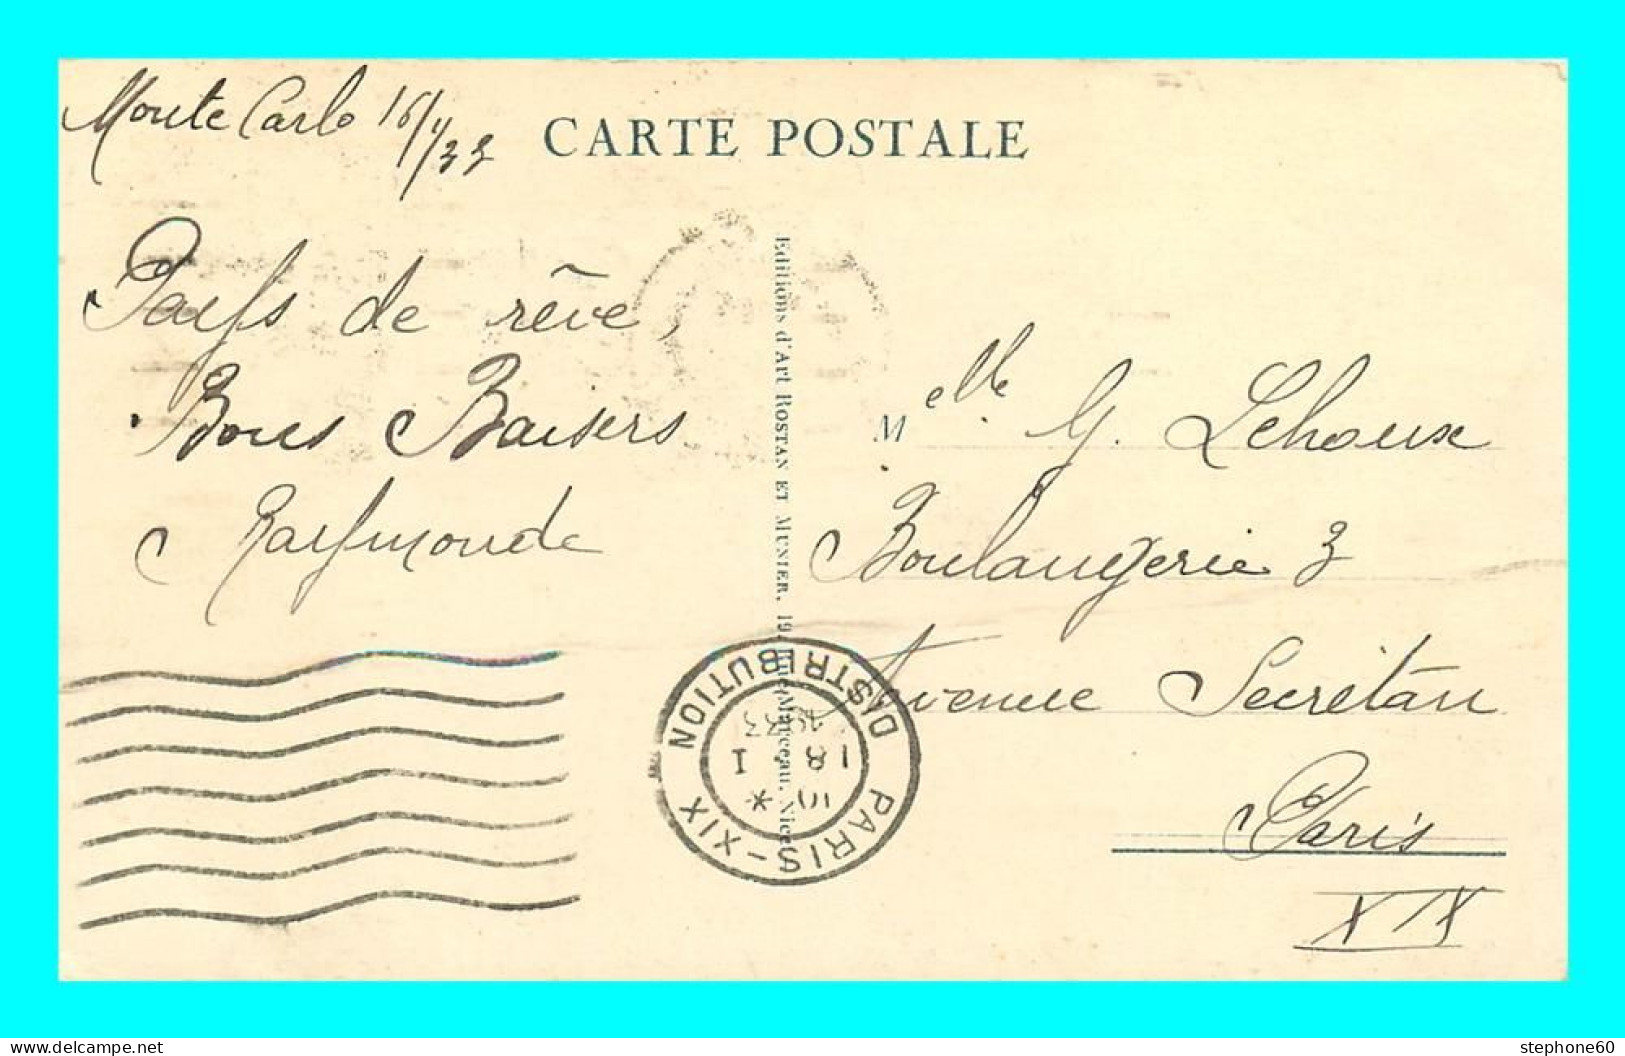 Monte Carlo 16/1/33
CARTE POSTALE
Pays de rêve,
Bons Baisers
Raymonde
Editions d'Art ROSTAN ET MUNIER, 19, Rue Marceau, Nice
Melle G. Lehoux
Boulangerie 3
Avenue Secrétan
Paris
XIX
PARIS-XIX DISTRIBUTION
18 I
1933
stephone60
www.delcampe.net